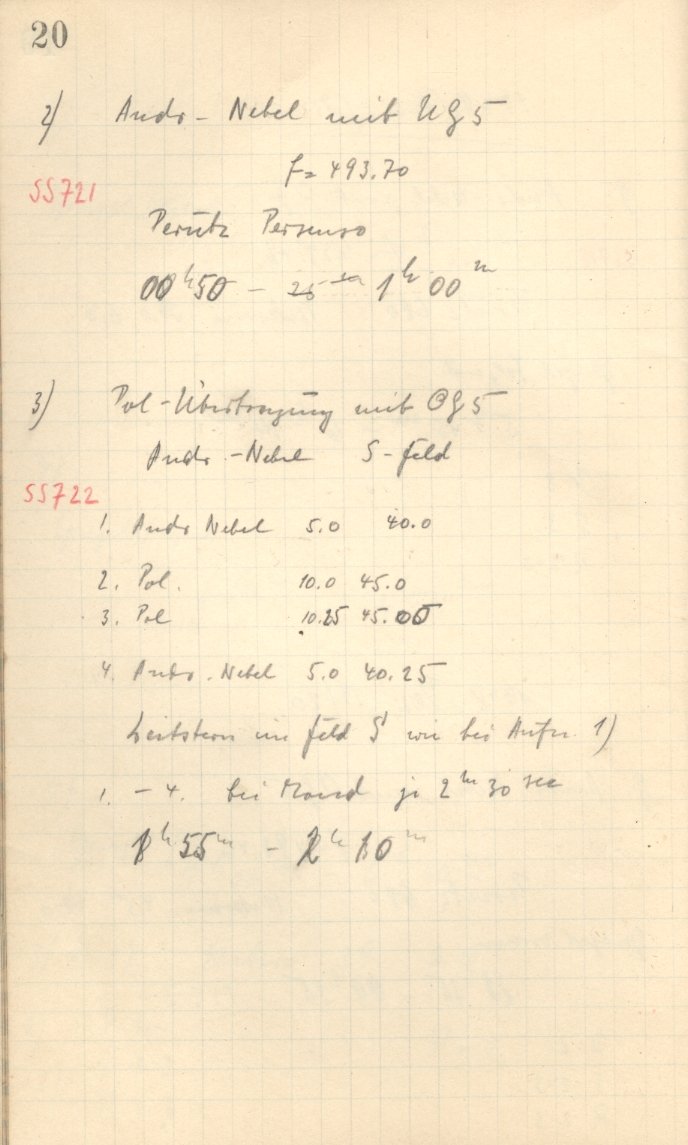 20
2) Andr - Nebel mit UG5
f = 493.70
SS721
Perutz Persenso
00h 50 - 25m 1h 00m
3) Pol-Übertragung mit OG5
Andr. - Nebel S-feld
SS722
1. Andr Nebel 5.0 40.0
2. Pol. 10.0 45.0
3. Pol 10.25 45.00
4. Andr. Nebel 5.0 40.25
Leitstern im feld S wie bei Aufn. 1)
1. - 4. bei Mond je 2m 30 sec
55m - 2h 10m